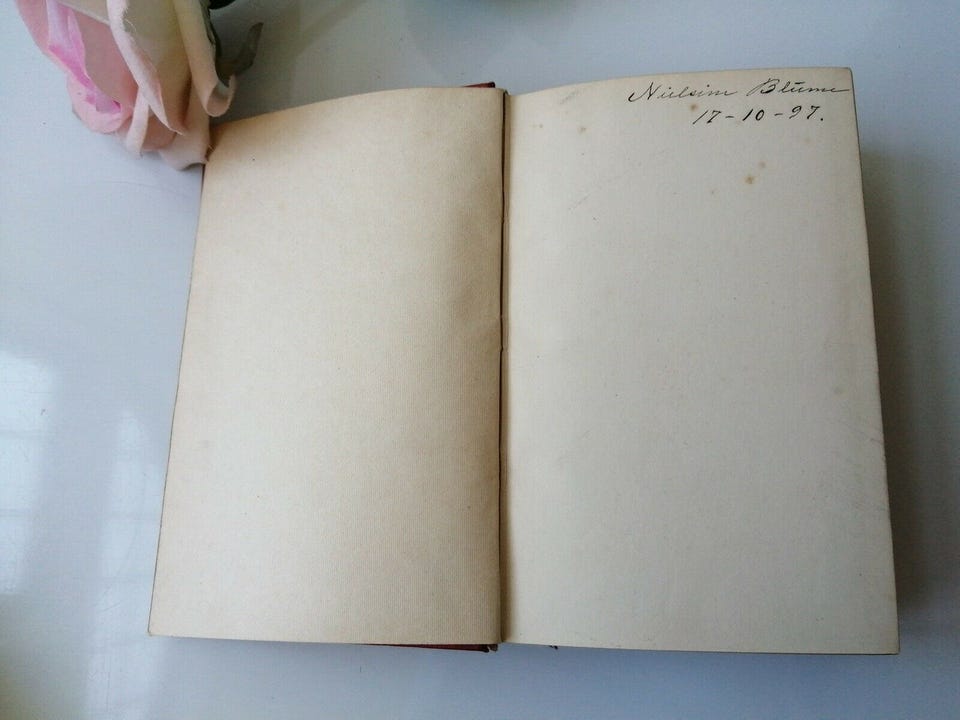 Nielsine Blume
17-10-97.